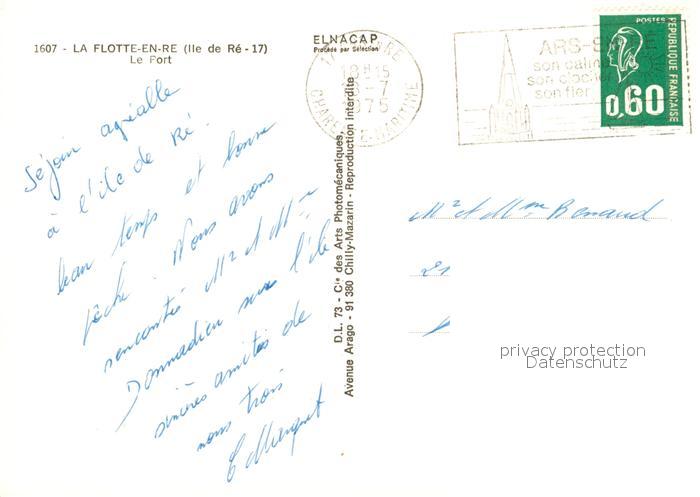 1607 - LA FLOTTE-EN-RE (Ile de Ré - 17)
Le Port
ELNACAP
Procédé par Sélection
Séjour agréable
à l'île de Ré.
beau temps et bonne
pêche. Nous avons
rencontrés Mr et Mme
Donnadieu sur l'île
sincères amitiés de
nous trois
D.L. 73 - Cie des Arts Photomécaniques,
Avenue Arago - 91 380 Chilly-Mazarin - Reproduction interdite
18 H 15
-7
1975
CHARENTE-MARITIME
ARS-
son
son clocher
son fier
POSTES
REPUBLIQUE FRANÇAISE
0,60
Mr et Mme Benaud
21
privacy protection
Datenschutz